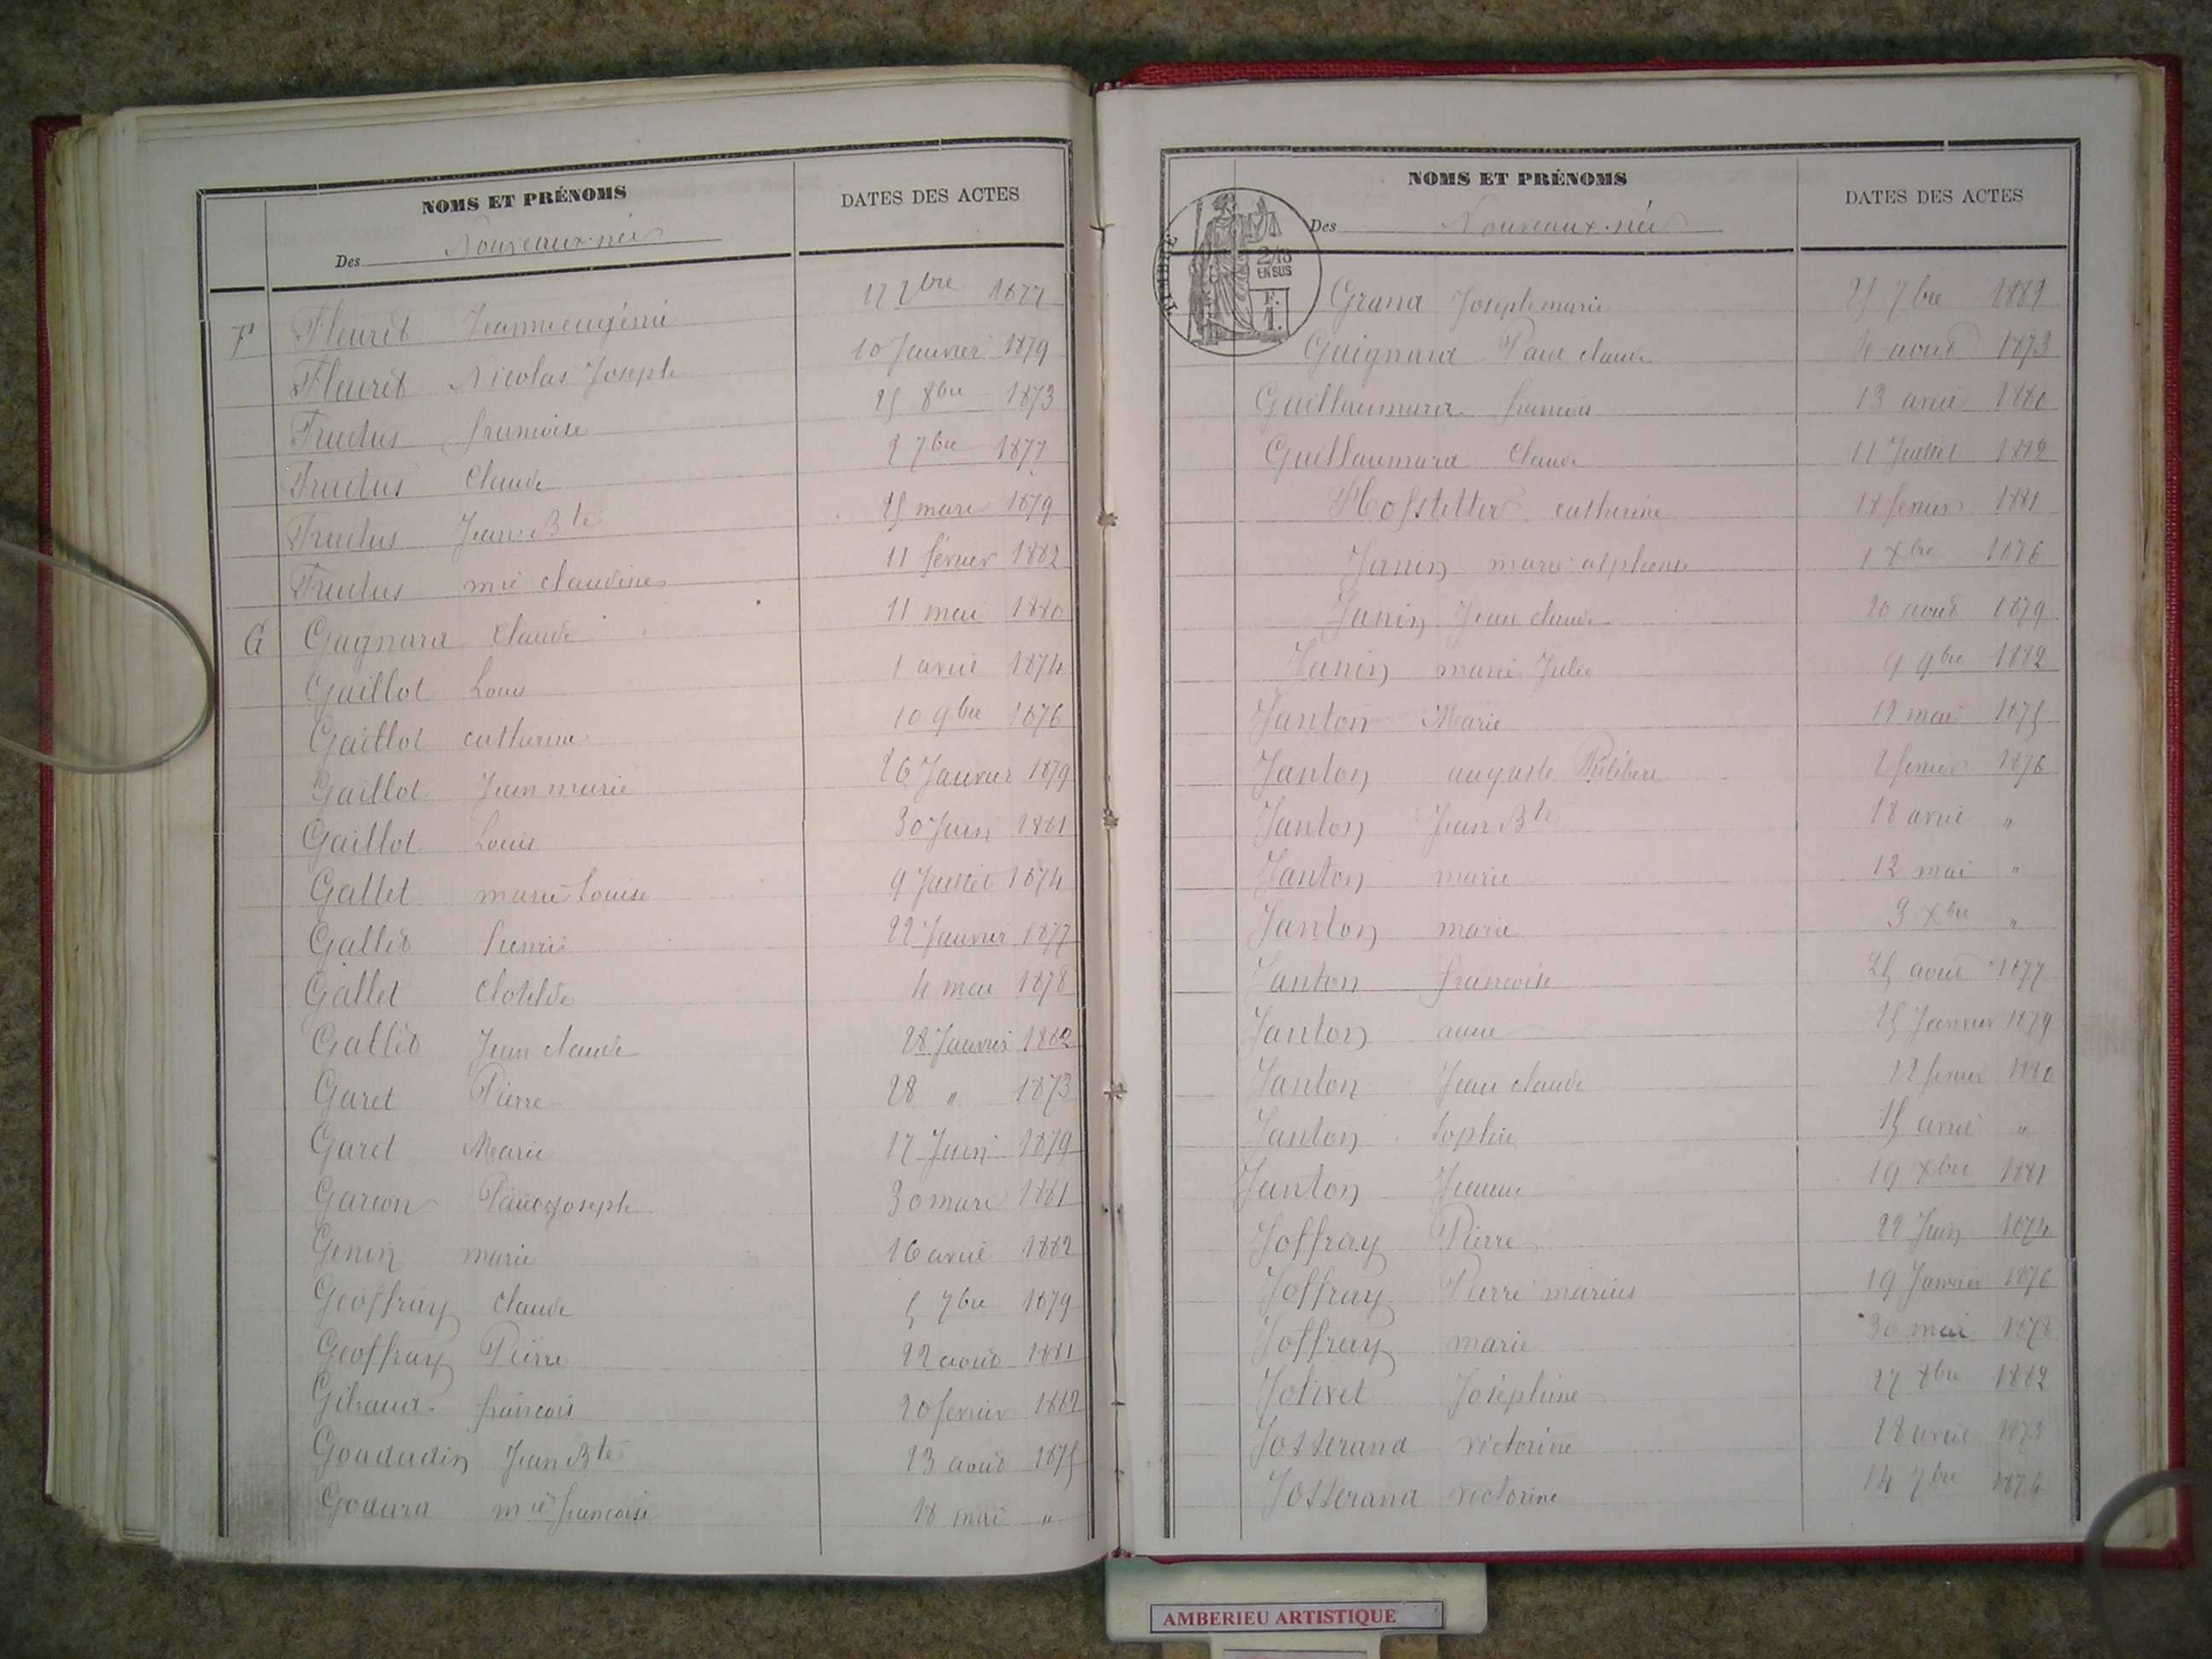 NOMS ET PRÉNOMS
DATES DES ACTES
Des Nouveaux-nés
F Fleuret Jeanne eugénie 1877
Fleuret Nicolas Joseph 10 Janvier 1879
Fructus francoise 25 8bre 1873
Fructus Claude 2 7bre 1877
Fructus Jean Bte 25 mars 1879
Fructus mie claudine 11 février 1882
G Gagnard Claude 11 mai 1880
Gaillot Louis 1 avril 1874
Gaillot catherine 10 9bre 1876
Gaillot Jean marie 26 Janvier 1879
Gaillot Louis 30 Juin 1881
Gallet marie Louise 9 Juillet 1874
Gallet henri 22 Janvier 1877
Gallet Clotilde 4 mai 1878
Gallet Jean claude 28 Janvier 1882
Garet Pierre 28 " 1873
Garet Marie 17 Juin 1879
Garcon Paul Joseph 30 mars 1881
Genin marie 16 avril 1882
Geoffray Claude 5 7bre 1879
Geoffray Pierre 22 aout 1881
Giraud francois 20 fevrier 1882
Goudadin Jean Bte 23 aout 1875
Godard mie francoise 18 mai "
NOMS ET PRÉNOMS
DATES DES ACTES
Des Nouveaux-nés
TIMBRE
2/10
EN SUS
F.
1.
Grand Joseph marie 25 7bre 1882
Guignard Paul claude 4 aout 1873
Guillaumard francois 13 avril 1880
Guillaumard Claude 11 Juillet 1882
Hofstetter catherine 18 fevrier 1881
Janin marie alphonse 1 Xbre 1876
Janin Jean claude 20 aout 1879
Janin marie Julie 9 9bre 1882
Janton Marie 12 mai 1875
Janton auguste Philibert 2 fevrier 1876
Janton Jean Bte 18 avril "
Janton marie 12 mai "
Janton marie 3 Xbre "
Janton francoise 25 aout 1877
Janton anne 25 Janvier 1879
Janton Jean claude 12 fevrier 1880
Janton Sophie 15 avril "
Janton Jeanne 19 Xbre 1881
Joffray Pierre 22 Juin 1874
Joffray Pierre marius 19 Janvier 1876
Joffray marie 30 mai 1878
Jolivet Joséphine 27 8bre 1882
Josserand victorine 28 avril 1873
Josserand victorine 14 7bre 1874
AMBERIEU ARTISTIQUE